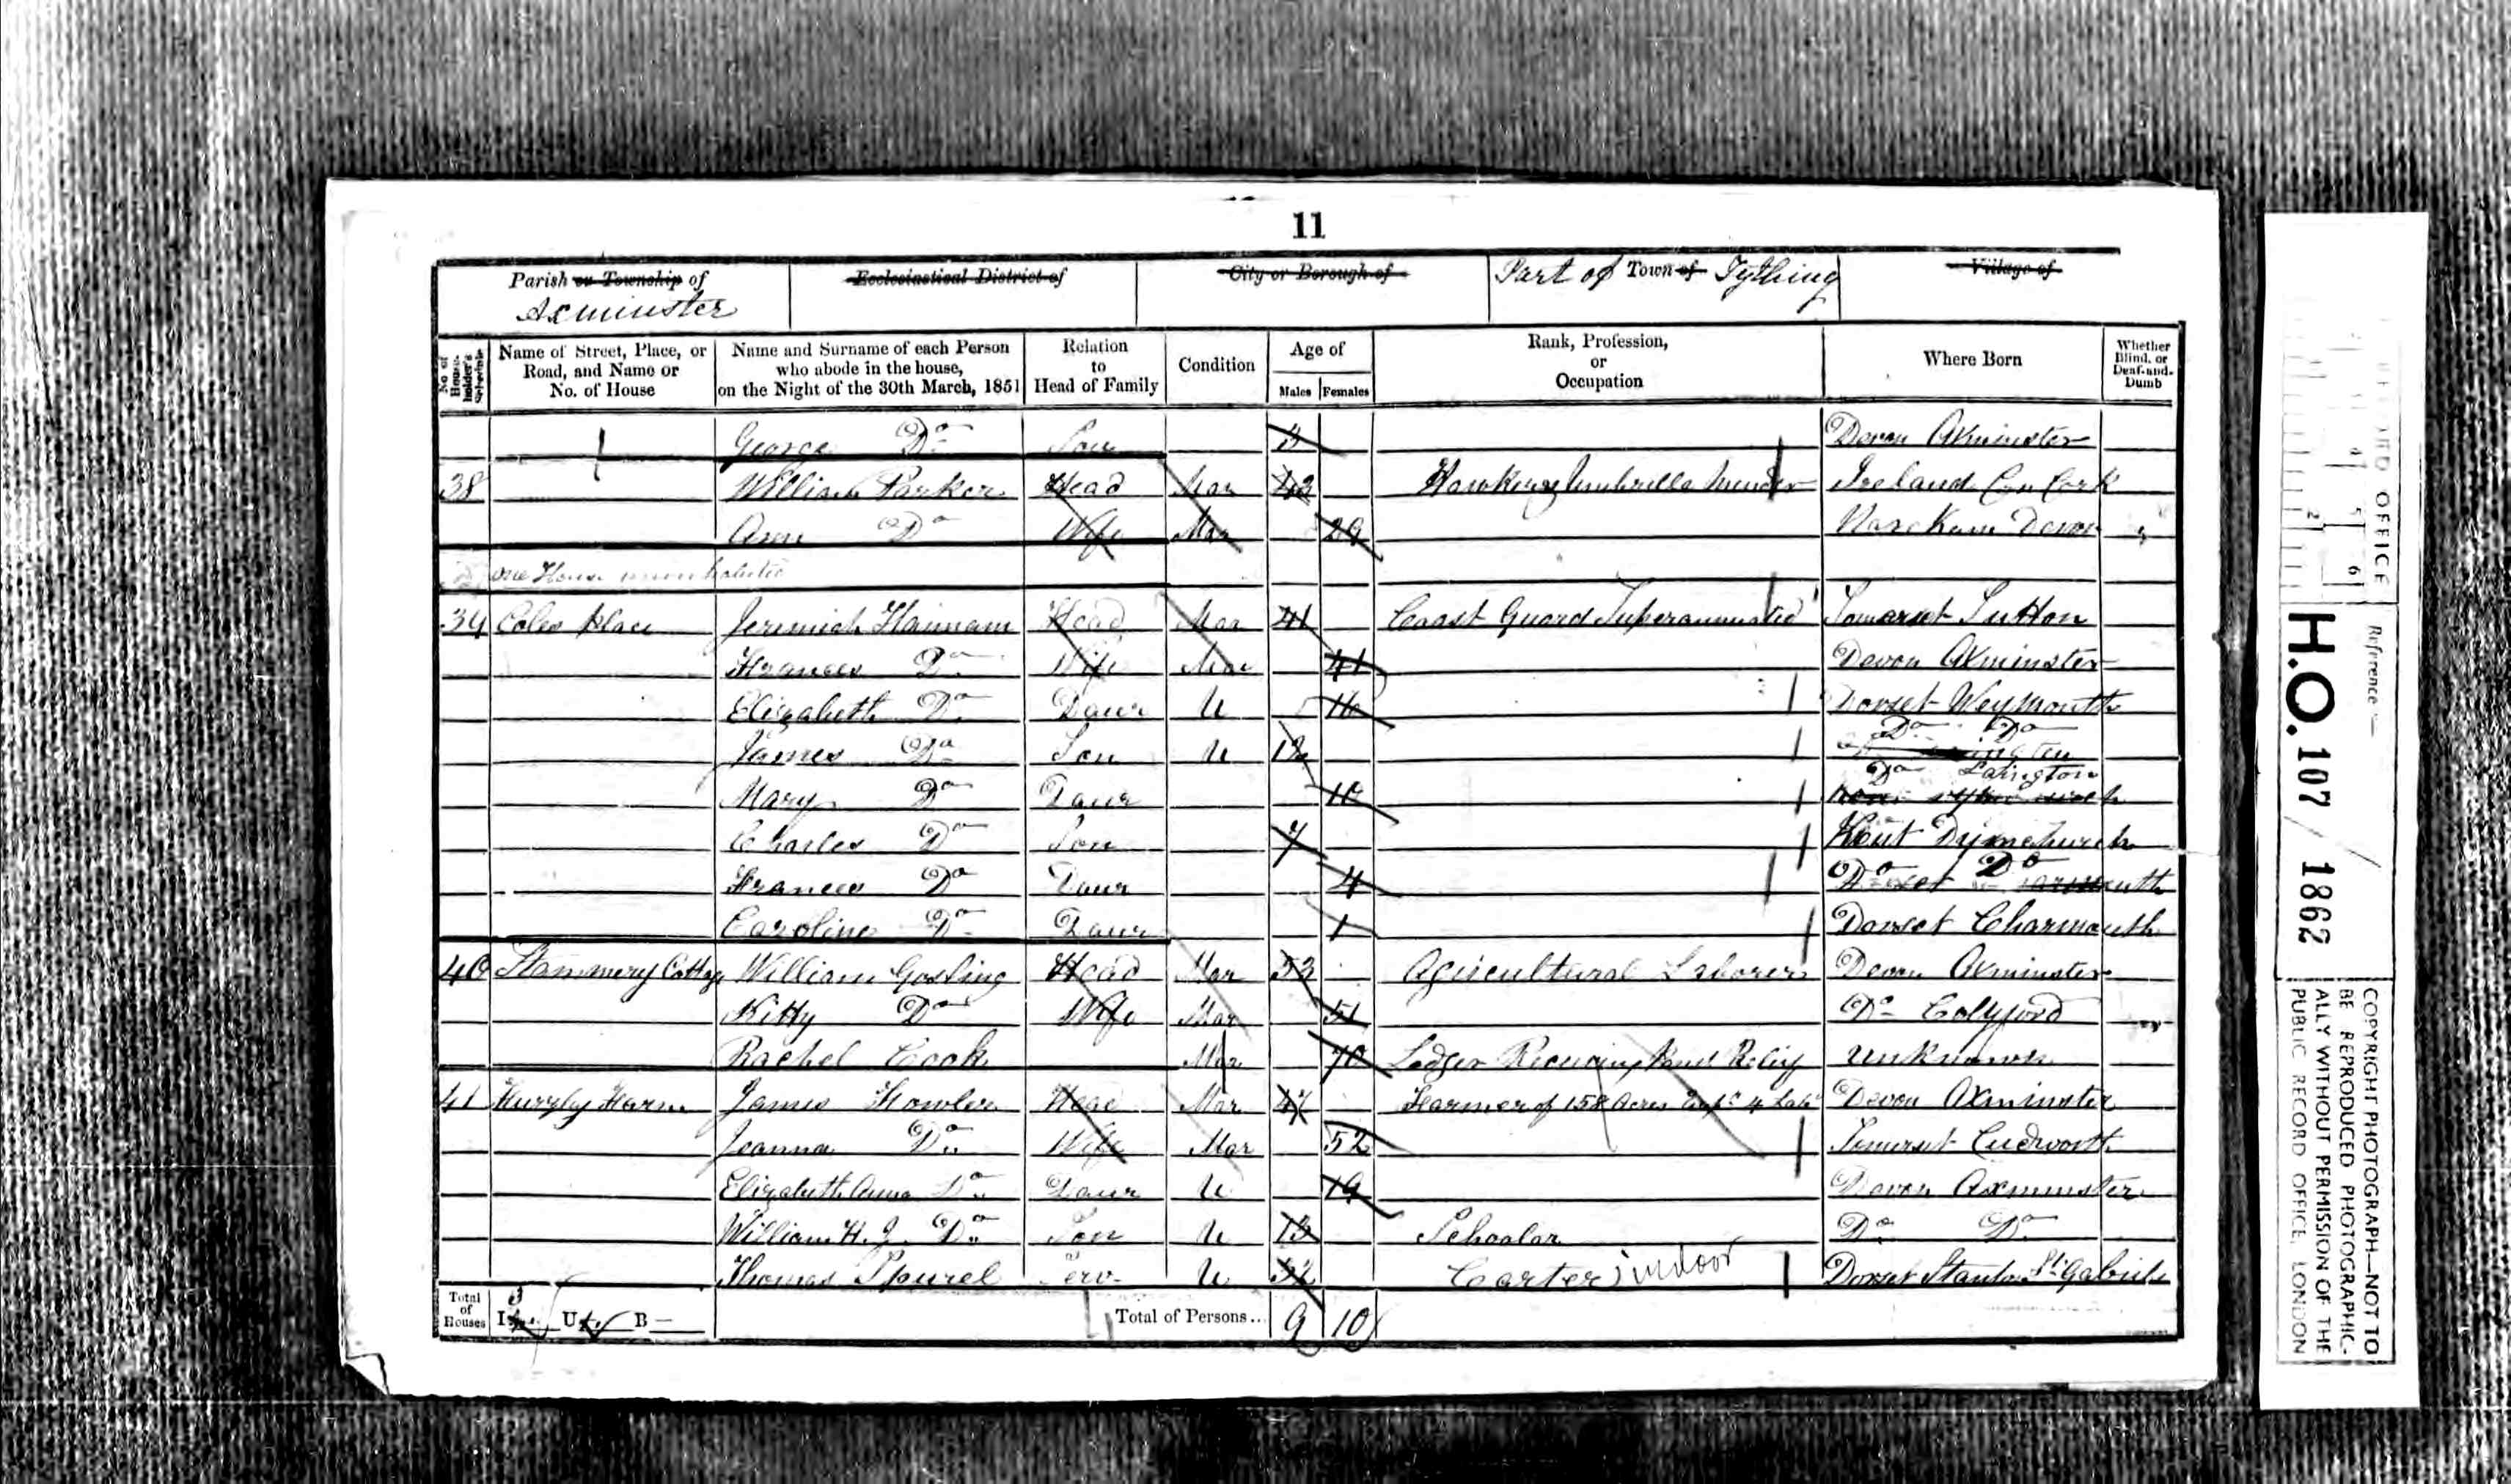 11
Parish or Township of Axminster
Ecclesiastical District of
City or Borough of
Part of Town of Tything
Village of
No. of Householder's Schedule
Name of Street, Place, or Road, and Name or No. of House
Name and Surname of each Person who abode in the house, on the Night of the 30th March, 1851
Relation to Head of Family
Condition
Age of
Males Females
Rank, Profession, or Occupation
Where Born
Whether Blind, or Deaf-and-Dumb
George Do Son 3 Devon Axminster
38 William Parker Head Mar 43 Hawker & Umbrella Mender Ireland Co. Cork
Ann Do Wife Mar 29 Devon
one House uninhabited
39 Coles place Jeremiah Hannam Head Mar 41 Coast Guard Superannuated Somerset Sutton
Frances Do Wife Mar 41 Devon Axminster
Elizabeth Do Daur U 16 Dorset Weymouth
James Do Son U 12 Do Do
Mary Do Daur 10 Do
Charles Do Son 7 Kent Dymchurch
Frances Do Daur 4 Do Do
Caroline Do Daur 1 Dorset Charmouth
40 Stammery Cottage William Gosling Head Mar 53 Agricultural Laborer Devon Axminster
Kitty Do Wife Mar 51 Do Colyford
Rachel Cook Mar 70 Lodger Receiving Relief unknown
41 Farm James Fowler Head Mar 47 Farmer of 158 Acres 4 Labs Devon Axminster
Joanna Do Wife Mar 52 Somerset Cudworth
Elizabeth Anna Do Daur U 19 Devon Axminster
William H. J. Do Son U 13 Schoolar Do Do
Thomas Spurel Serv U 32 Carter indoor Dorset Stanton St Gabriels
Total of Houses I 3 U B —
Total of Persons... 9 10
RECORD OFFICE
Reference :—
H.O. 107 / 1862
COPYRIGHT PHOTOGRAPH—NOT TO
BE REPRODUCED PHOTOGRAPHIC-
ALLY WITHOUT PERMISSION OF THE
PUBLIC RECORD OFFICE, LONDON